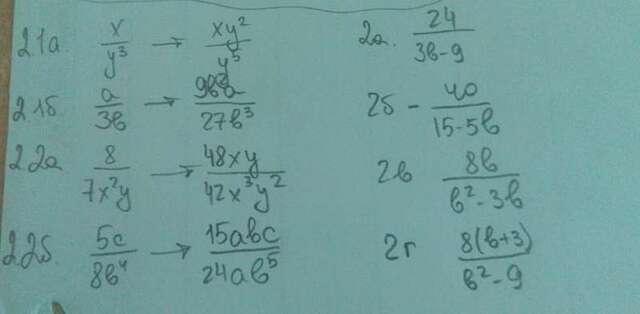 2.1а. x/y³ → xy²/y⁵ 2а. 24/3в-9
2.1б a/3в → 9в²a/27в³ 2б - 40/15-5в
2.2а 8/7x²y → 48xy/42x³y² 2в 8в/в²-3в
2.2б. 5c/8в⁴ → 15aвc/24aв⁵ 2г 8(в+3)/в²-9